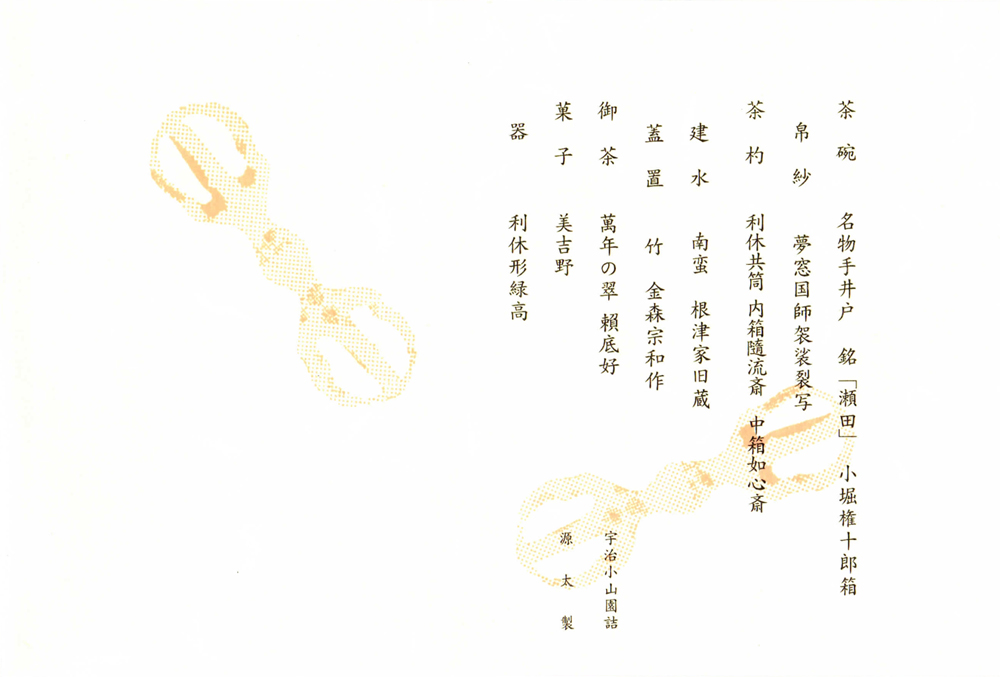 茶碗 名物手井戸 銘「瀬田」 小堀権十郎箱
帛紗 夢窓国師袈裟裂写
茶杓 利休共筒 内箱隨流斎 中箱如心斎
建水 南蛮 根津家旧蔵
蓋置 竹 金森宗和作
御茶 萬年の翠 頼底好 宇治小山園詰
菓子 美吉野 源太製
器 利休形緑高